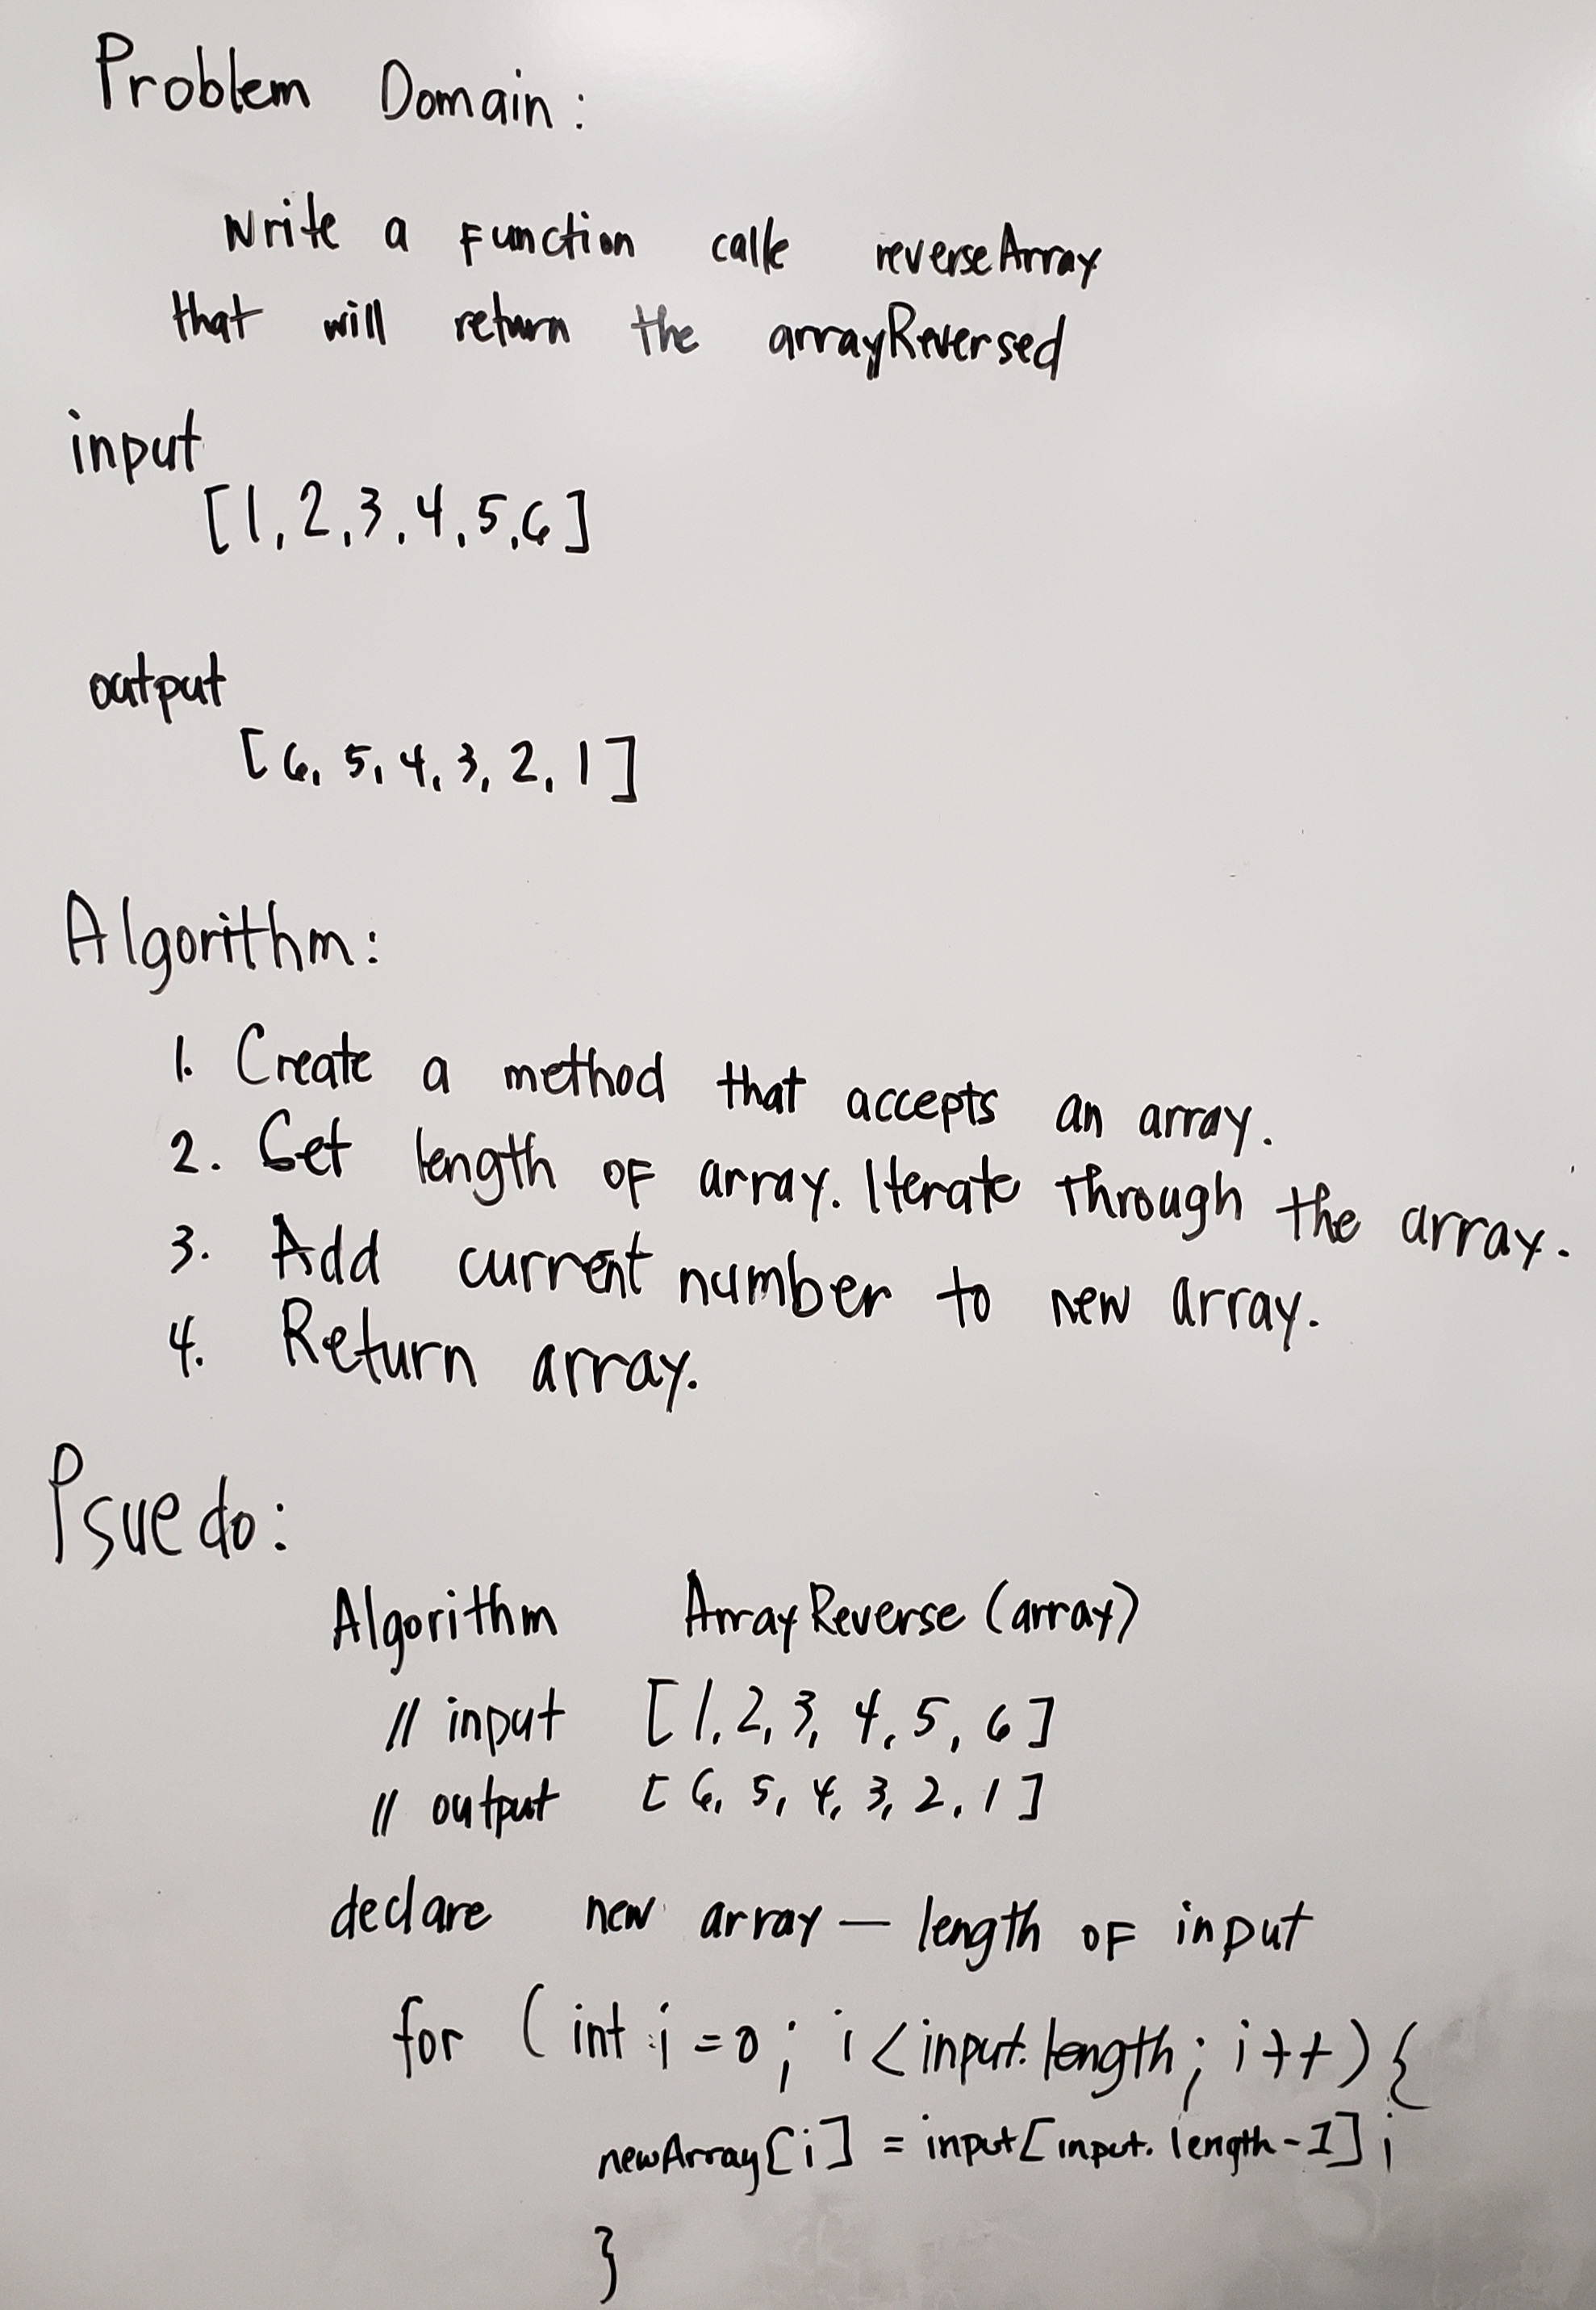 Problem Domain:
Write a Function calle reverseArray
that will return the arrayReversed
input
[1,2,3,4,5,6]
output
[6,5,4,3,2,1]
Algorithm:
1. Create a method that accepts an array.
2. Get length of array. Iterate through the array.
3. Add current number to new array.
4. Return array.
Psuedo:
Algorithm ArrayReverse (array)
// input [1,2,3,4,5,6]
// output [6,5,4,3,2,1]
declare new array — length of input
for (int i = 0; i < input.length; i++) {
newArray[i] = input[input.length-1];
}